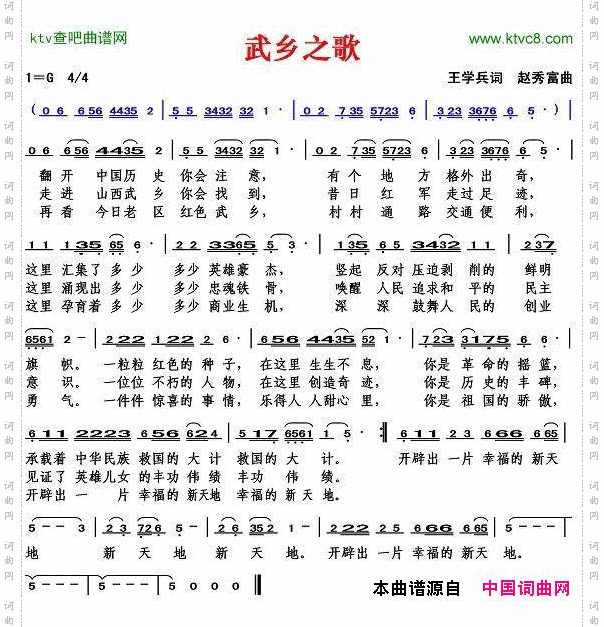 ktv查吧曲谱网
武乡之歌
www.ktvc8.com
1=G 4/4
王学兵词 赵秀富曲
(0 6 6 56 4435 2 | 5 5 3432 32 1 · | 0 2 7 35 5723 6 · | 3 23 3676 6 5 · )
0 6 6 56 4435 2 · | 5 5 3432 32 1 · | 0 2 7 35 5723 6 · | 3 23 3676 6 5 ·
翻开 中国历 史 你会 注 意, 有 个 地 方 格外 出 奇,
走进 山西武 乡 你会 找 到, 昔 日 红 军 走过 足 迹,
再看 今日老 区 红色 武 乡, 村 村 通 路 交通 便 利,
1 1 135 65 6 · | 2 2 3365 5 3 · | 135 6 5 3432 5 1 · | 2 237
这里 汇集了 多 少 多少 英雄豪 杰, 竖起 反对 压迫剥 削的 鲜明
这里 涌现出 多 少 多少 忠魂铁 骨, 唤醒 人民 追求和 平的 民主
这里 孕育着 多 少 多少 商业生 机, 深 深 鼓舞人 民的 创业
6561 2 - | 222 122 2 6 · | 6 56 4435 52 1 · | 723 3175 6 ·
旗 帜。 一粒粒 红色的 种 子, 在这里 生生不 息, 你是 革 命的摇 篮,
意 识。 一位位 不朽的 人 物, 在这里 创造奇 迹, 你是 历 史的丰 碑,
勇 气。 一件件 惊喜的 事 情, 乐得人 人甜心 里, 你是 祖 国的骄 傲,
611 2223 6 56 624 | 517 6561 1 5 · :| 611 2 23 666 665
承载着 中华民族 救国的 大 计 救国的 大 计。 开辟出 一片 幸福的 新天
见证了 英雄儿女 的丰功 伟绩 丰功 伟 绩。
开辟出 一 片 幸福的 新天地 幸福的 新天 地。
5 - - 3 | 2 3 726 5 - | 2 6 352 1 - | 222 2 35 666 665
地 新 天 地 新 天 地。 开辟出 一片 幸福的 新天 地。
5 - - - | 5 - - - | 5 0 0 0 ‖
本曲谱源自 中国词曲网